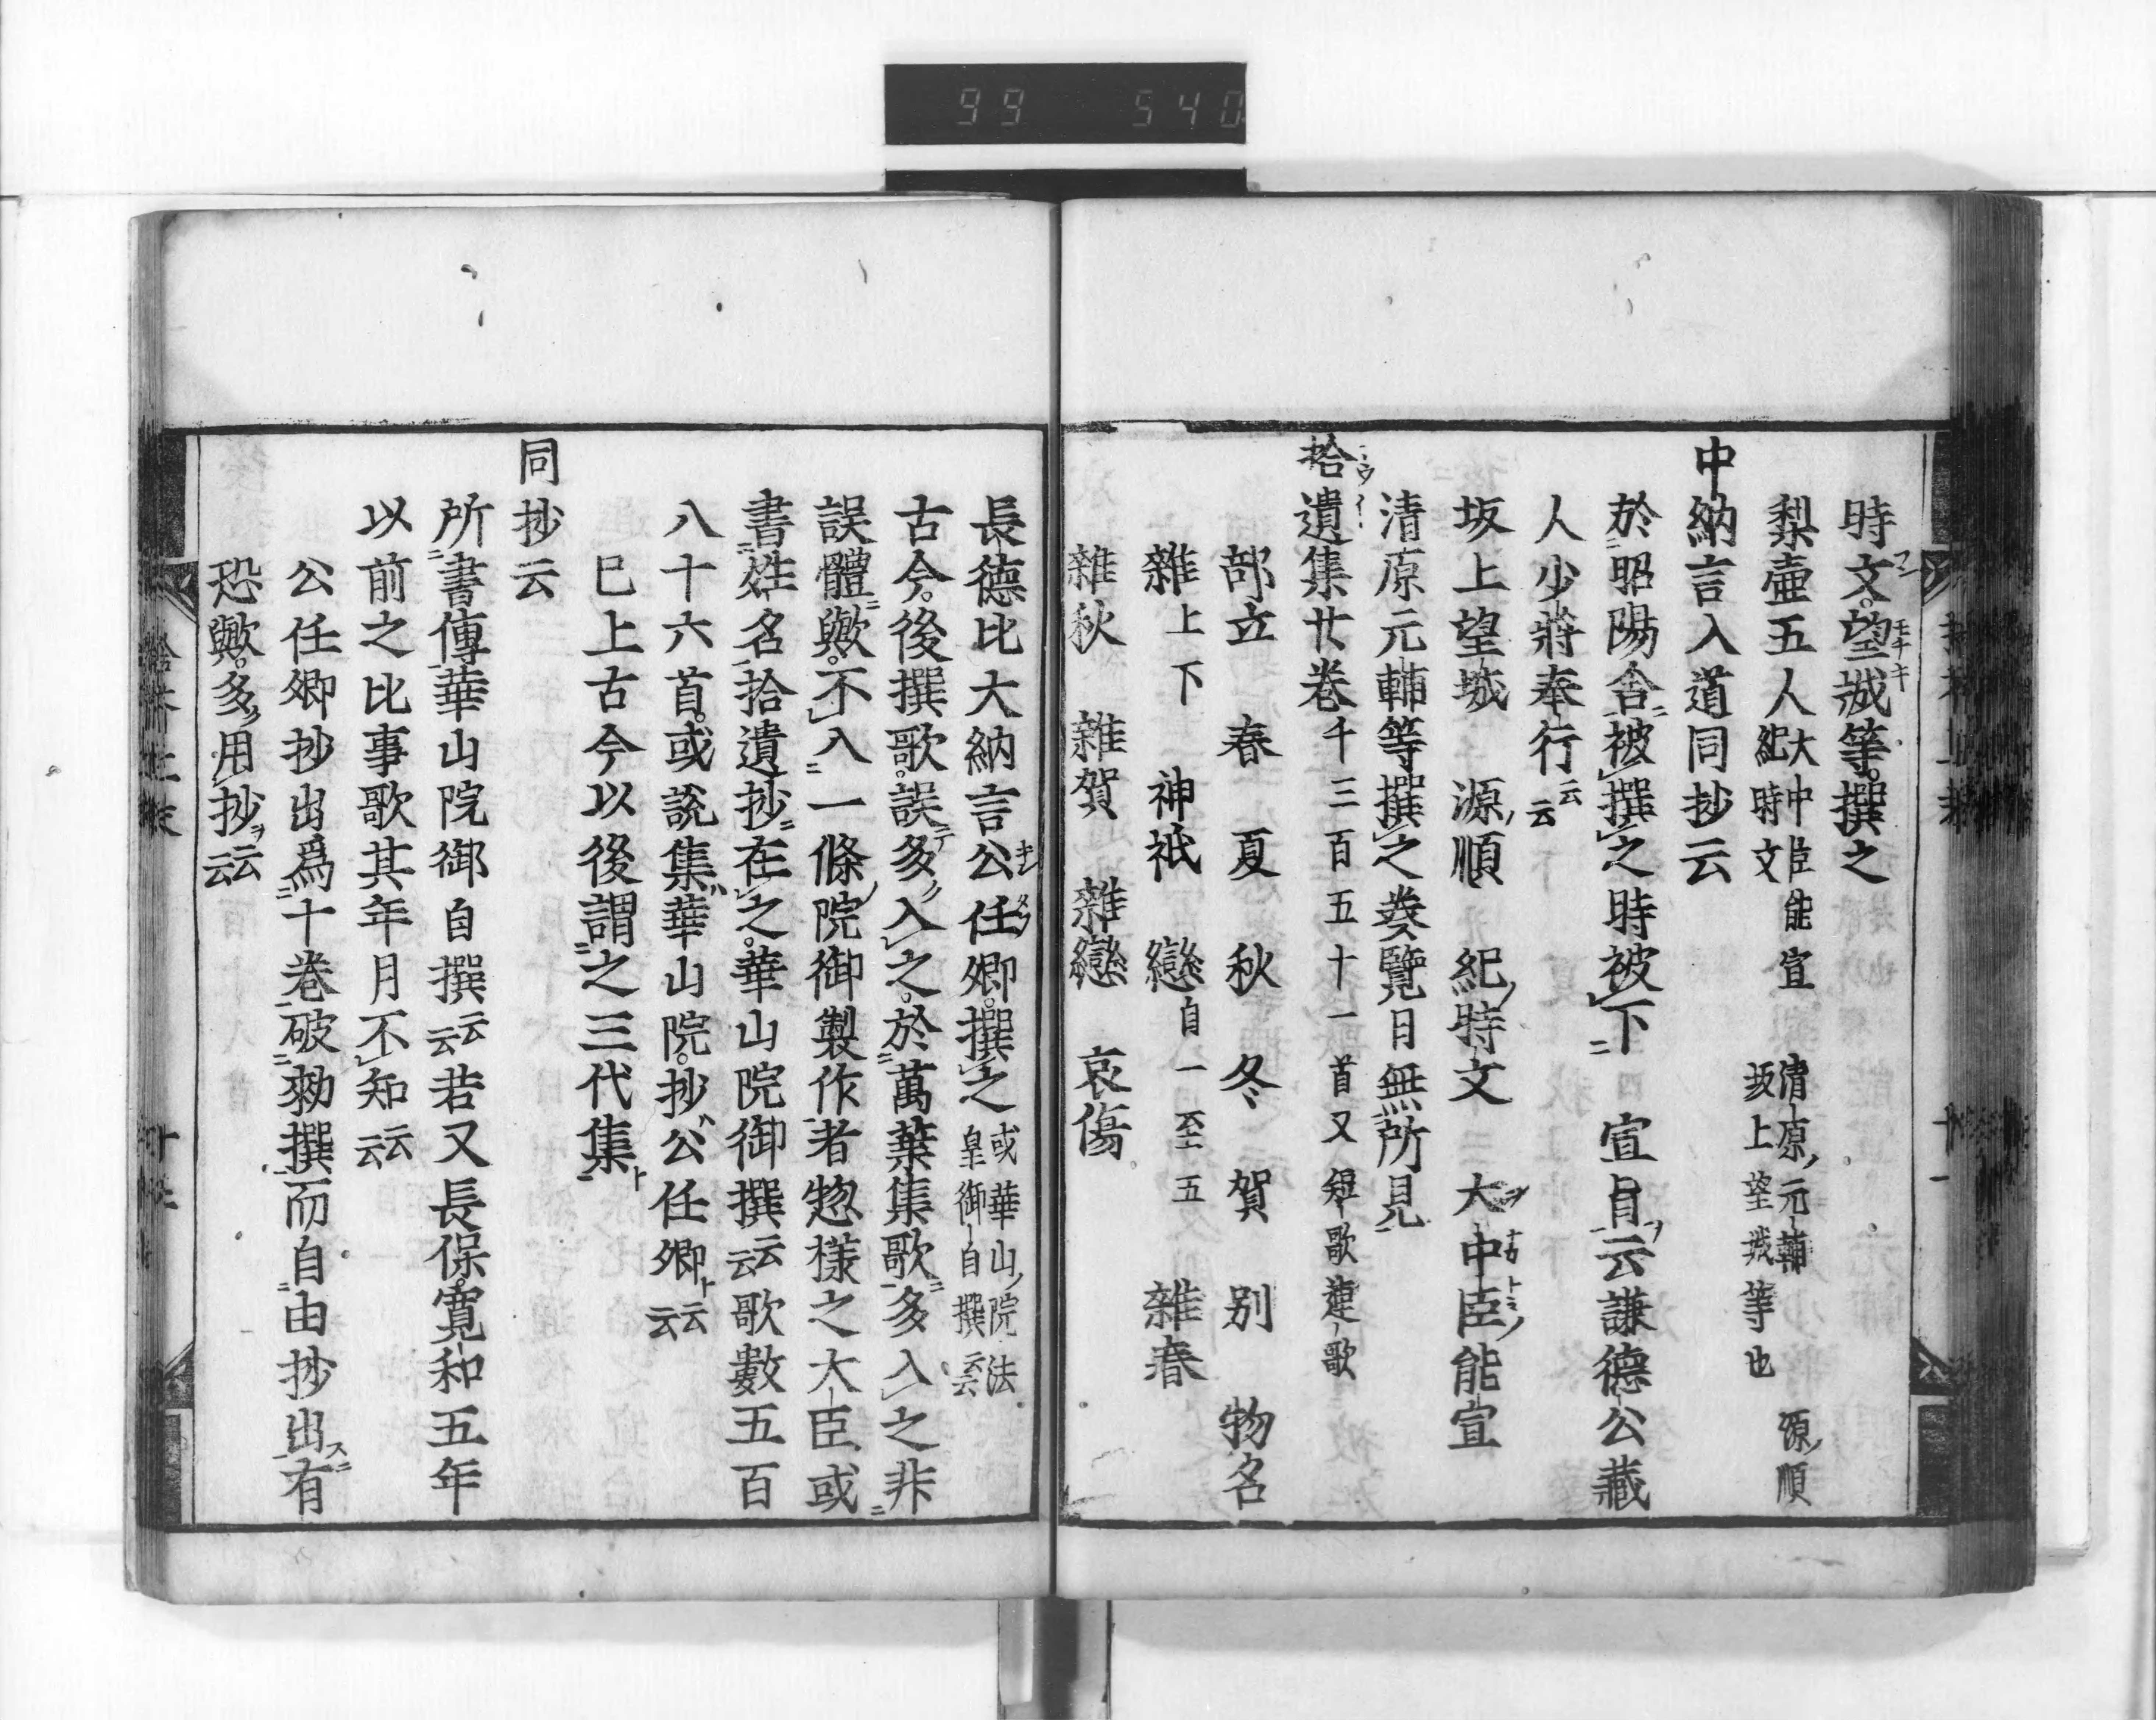 99 540
時文。望城等。撰之
梨壷五人大中臣能宣 清原元輔 源順
紀時文 坂上望城等也
中納言入道同抄云
於昭陽舎被撰之時被下 宣旨云謙德公藏
人少將奉行云云
坂上望城 源順 紀時文 大中臣能宣
清原元輔等撰之奏覽日無所見
拾遺集廿巻千三百五十一首又短歌連歌
部立 春 夏 秋 冬 賀 別 物名
雜上下 神祇 戀自一至五 雜春
雜秋 雜賀 雜戀 哀傷
長德比大納言公任卿。撰之或華山院法
皇御自撰云云
古今。後撰歌。誤多入之。於萬葉集歌多入之非
誤體歟。不入一條院御製作者惣様之大臣或
書姓名拾遺抄在之。華山院御撰云云歌數五百
八十六首。或說集華山院。抄公任卿云云
已上古今以後謂之三代集
同抄云
所書傳華山院御自撰云云若又長保。寬和五年
以前之比事歌其年月不知云云
公任卿抄出爲十巻破勅撰而自由抄出有
恐歟。多用抄云云